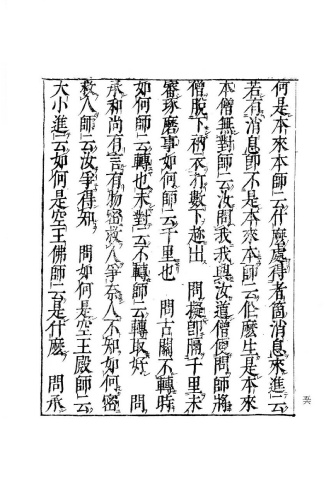 何是本來本師云什麼處得者箇消息來進云
若有消息卽不是本來本師云作麼生是本來
本僧無對師云汝問我我與汝道僧便問師將
僧脫下衲衣打數下趁出　問擬卽隔千里未
審琢磨事如何師云千里也　問古關不轉時
如何師云轉也未對云不轉師云轉取好　問
承和尚有言有物密救人爭奈人不知如何密
救人師云汝爭得知　問如何是空王殿師云
大小進云如何是空王佛師云是什麼　問承